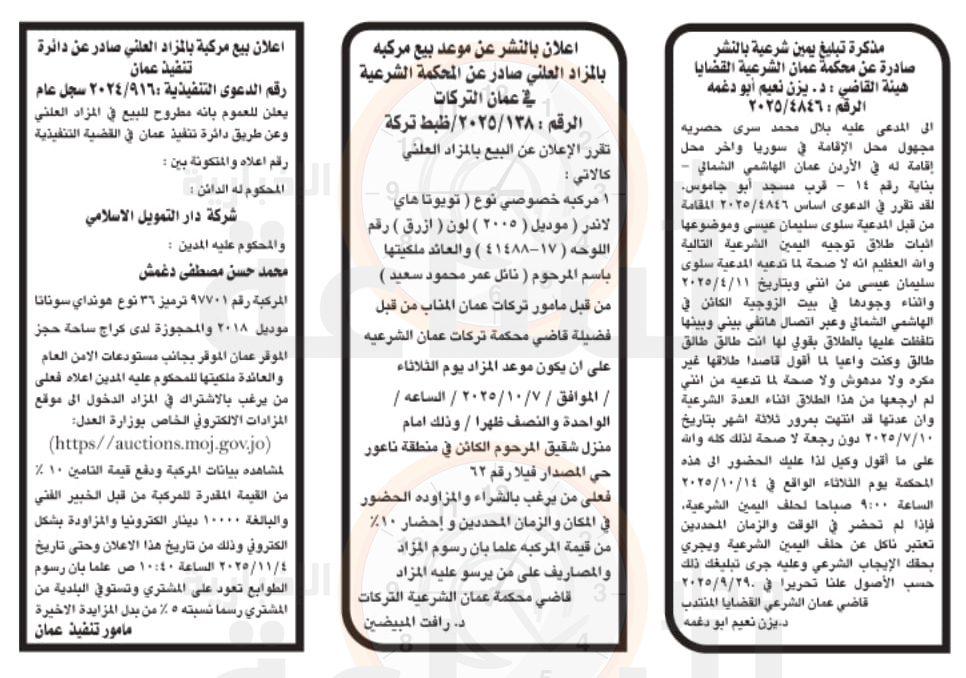 مذكرة تبليغ يمين شرعية بالنشر
صادرة عن محكمة عمان الشرعية القضايا
هيئة القاضي : د . يزن نعيم أبو دغمه
الرقم : ٢٠٢٥/٤٨٤٦
الى المدعى عليه بلال محمد سرى حصريه
مجهول محل الإقامة في سوريا واخر محل
إقامة له في الأردن عمان الهاشمي الشمالي –
بناية رقم ١٤ – قرب مسجد أبو جاموس.
لقد تقرر في الدعوى اساس ٢٠٢٥/٤٨٤٦ المقامة
من قبل المدعية سلوى سليمان عيسى وموضوعها
اثبات طلاق توجيه اليمين الشرعية التالية
والله العظيم انه لا صحة لما تدعيه المدعية سلوى
سليمان عيسى من انني وبتاريخ ٢٠٢٥/٤/١١
واثناء وجودها في بيت الزوجية الكائن في
الهاشمي الشمالي وعبر اتصال هاتفي بيني وبينها
تلفظت عليها بالطلاق بقولي لها انت طالق طالق
طالق وكنت واعيا لما أقول قاصدا طلاقها غير
مكره ولا مدهوش ولا صحة لما تدعيه من انني
لم ارجعها من هذا الطلاق اثناء العدة الشرعية
وان عدتها قد انتهت بمرور ثلاثة اشهر بتاريخ
٢٠٢٥/٧/١٠ دون رجعة لا صحة لذلك كله والله
على ما أقول وكيل لذا عليك الحضور الى هذه
المحكمة يوم الثلاثاء الواقع في ٢٠٢٥/١٠/١٤
الساعة ٩:٠٠ صباحا لحلف اليمين الشرعية،
فإذا لم تحضر في الوقت والزمان المحددين
تعتبر ناكل عن حلف اليمين الشرعية ويجري
بحقك الإيجاب الشرعي وعليه جرى تبليغك ذلك
حسب الأصول علنا تحريرا في ٢٠٢٥/٩/٢٩.
قاضي عمان الشرعي القضايا المنتدب
د.يزن نعيم ابو دغمه
اعلان بالنشر عن موعد بيع مركبه
بالمزاد العلني صادر عن المحكمة الشرعية
في عمان التركات
الرقم : ٢٠٢٥/١٣٨/ظبط تركة
تقرر الإعلان عن البيع بالمزاد العلني
كالاتي :
١ مركبه خصوصي نوع ( تويوتا هاي
لاندر ( موديل ( ٢٠٠٥ ) لون ( ازرق ) رقم
اللوحه ( ١٧-٤١٤٨٨ ) والعائد ملكيتها
باسم المرحوم ( نائل عمر محمود سعيد )
من قبل مامور تركات عمان المناب من قبل
فضيلة قاضي محكمة تركات عمان الشرعيه
على ان يكون موعد المزاد يوم الثلاثاء
/ الموافق / ٢٠٢٥/١٠/٧ / الساعه /
الواحدة والنصف ظهرا / وذلك امام
منزل شقيق المرحوم الكائن في منطقة ناعور
حي المصدار فيلا رقم ٦٢
فعلى من يرغب بالشراء والمزاوده الحضور
في المكان والزمان المحددين و إحضار ١٠٪
من قيمة المركبه علما بان رسوم المزاد
والمصاريف على من يرسو عليه المزاد
قاضي محكمة عمان الشرعية التركات
د. رافت المبيضين
اعلان بيع مركبة بالمزاد العلني صادر عن دائرة
تنفيذ عمان
رقم الدعوى التنفيذية :٢٠٢٤/٩١٦ سجل عام
يعلن للعموم بانه مطروح للبيع في المزاد العلني
وعن طريق دائرة تنفيذ عمان في القضية التنفيذية
رقم اعلاه والمتكونة بين :
المحكوم له الدائن :
شركة دار التمويل الاسلامي
والمحكوم عليه المدين :
محمد حسن مصطفى دغمش
المركبة رقم ٩٧٧٠١ ترميز ٣٦ نوع هونداي سوناتا
موديل ٢٠١٨ والمحجوزة لدى كراج ساحة حجز
الموقر عمان الموقر بجانب مستودعات الامن العام
والعائدة ملكيتها للمحكوم عليه المدين اعلاه فعلى
من يرغب بالاشتراك في المزاد الدخول الى موقع
المزادات الالكتروني الخاص بوزارة العدل:
(https//auctions.moj.gov.jo)
لمشاهده بيانات المركبة ودفع قيمة التامين ١٠ ٪
من القيمة المقدرة للمركبة من قبل الخبير الفني
والبالغة ١٠٠٠٠ دينار الكترونيا والمزاودة بشكل
الكتروني وذلك من تاريخ هذا الاعلان وحتى تاريخ
٢٠٢٥/١١/٤ الساعة ١٠:٤٠ ص علما بان رسوم
الطوابع تعود على المشتري وتستوفي البلدية من
المشتري رسما نسبته ٥ ٪ من بدل المزايدة الاخيرة
مامور تنفيذ عمان